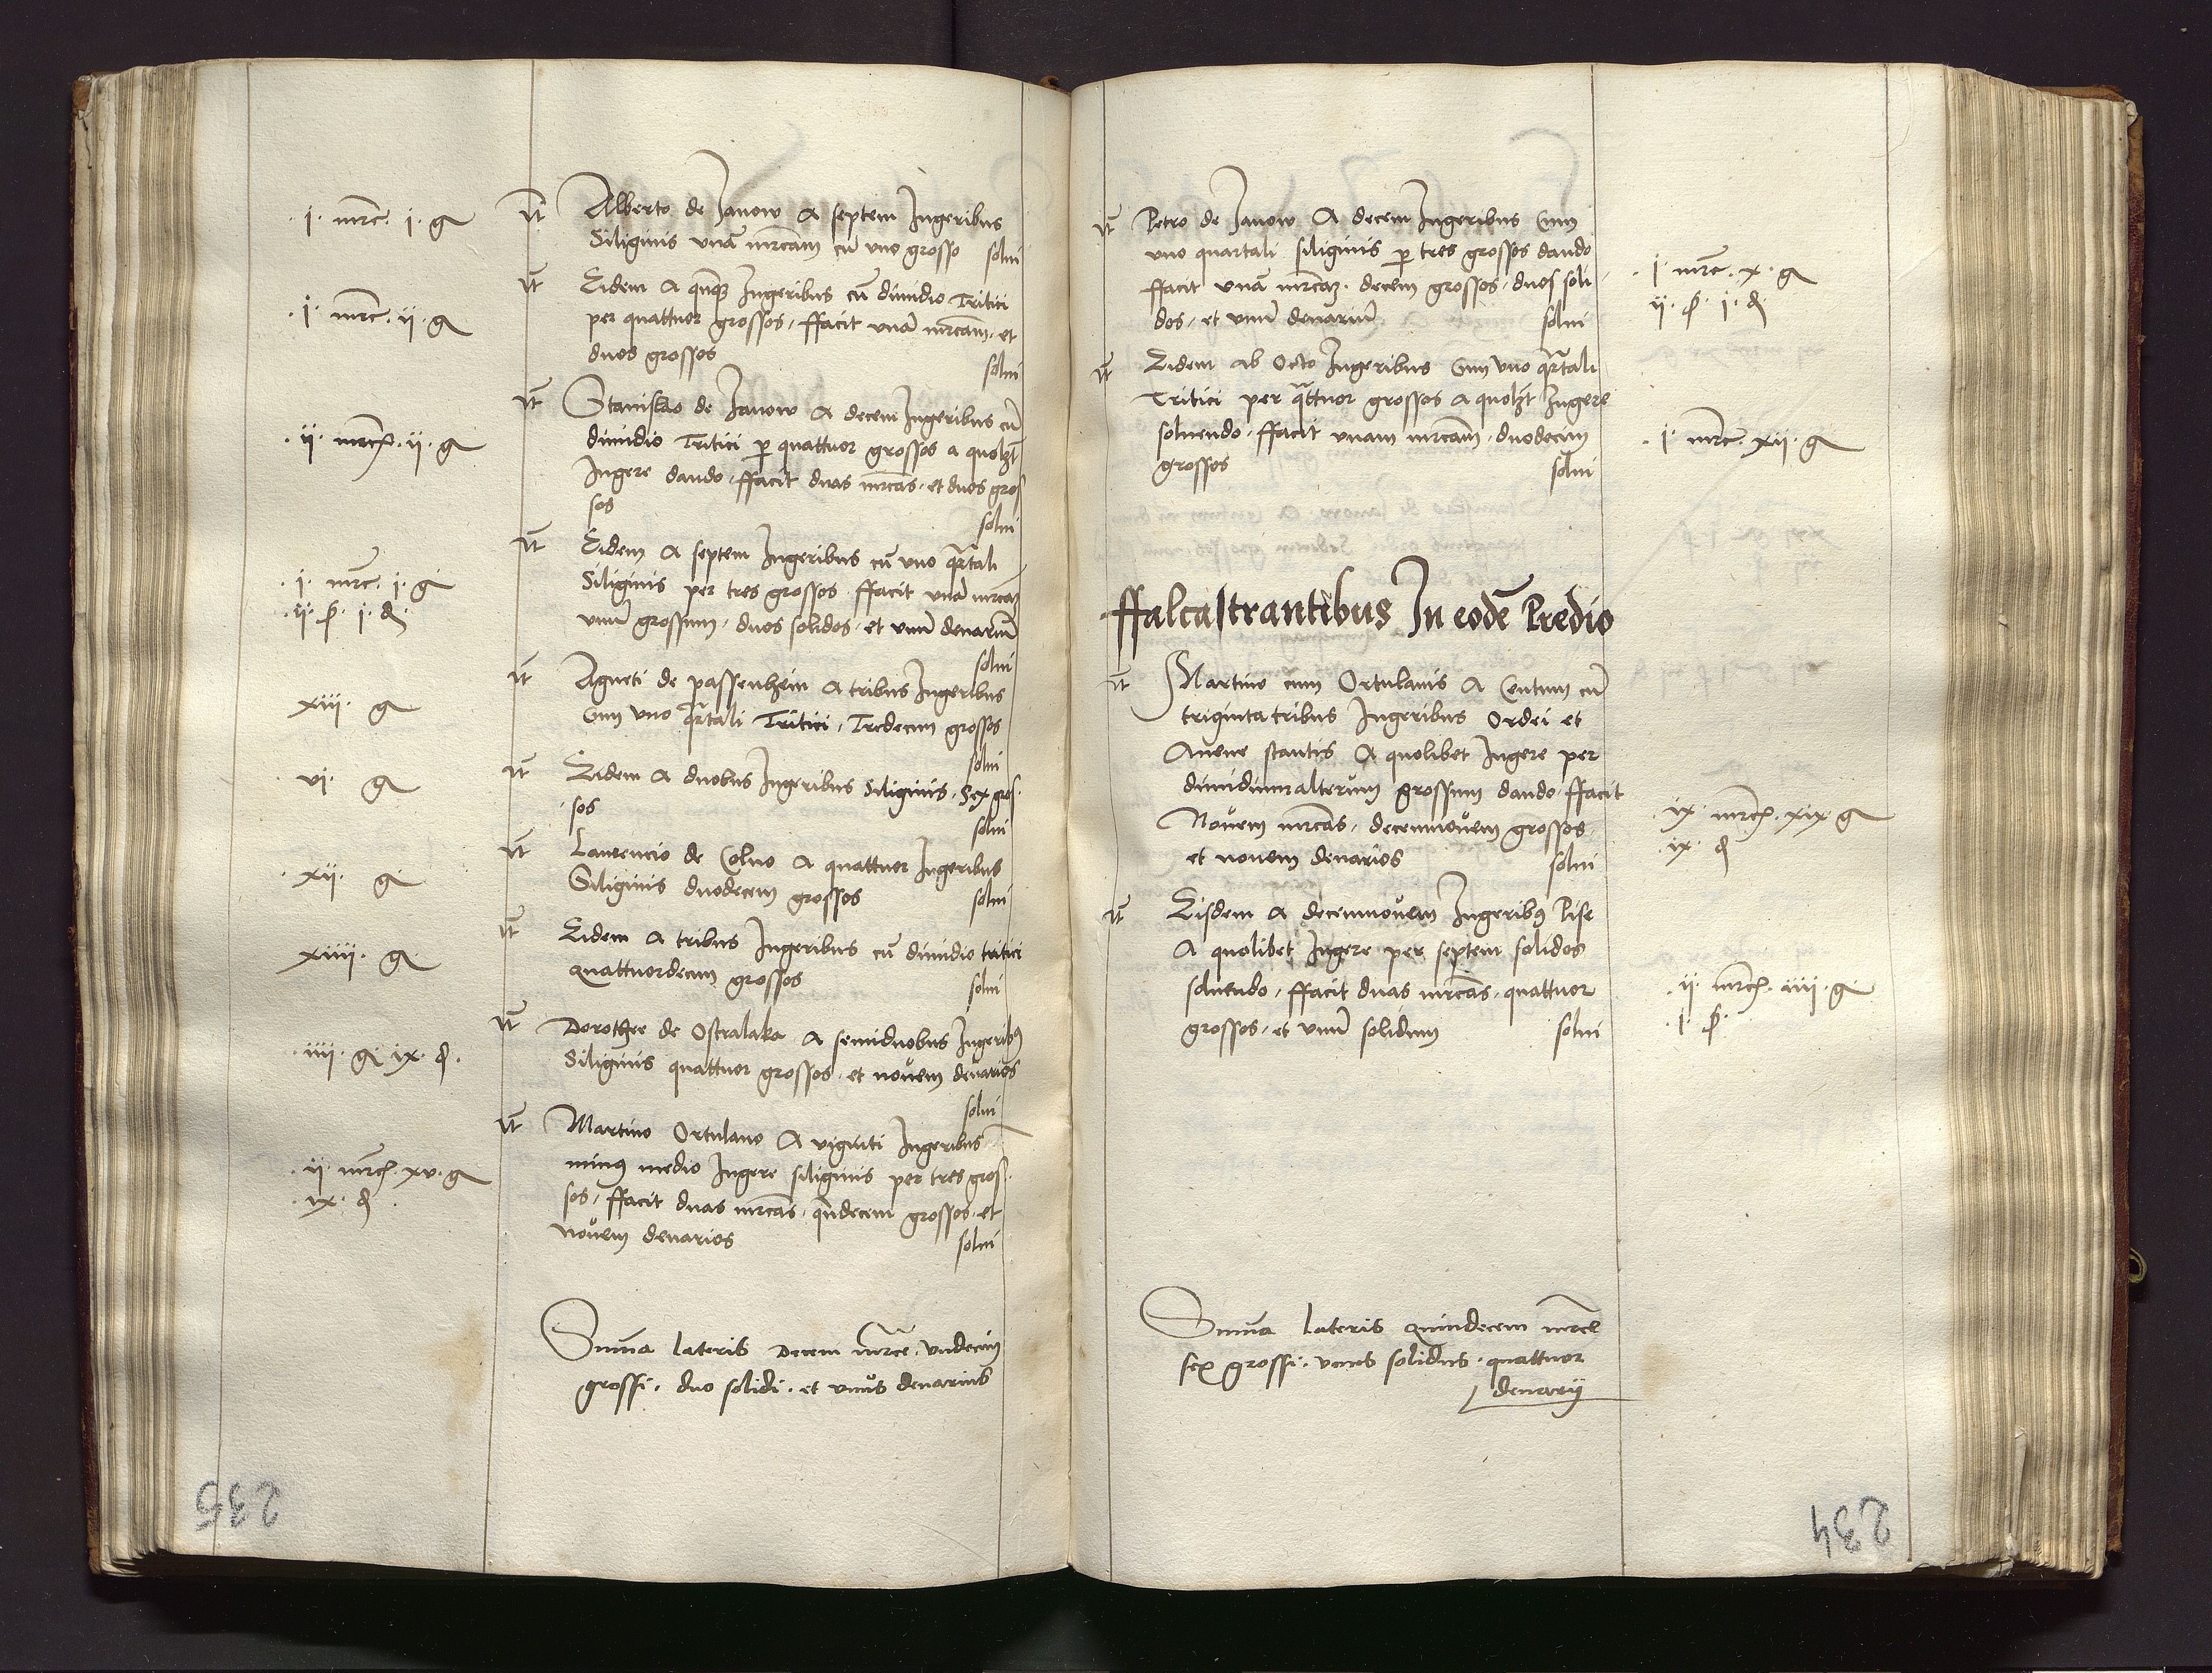 ·j· mrc· j· g
It Alberto de Janow A septem Jugeribus
Siliginis vnā mrcam cū vno grosso solui
·j· mrc· ij· g
It Eidem A qnqz Jugeribus cū dimidio Tritici
per quattuor grossos, ffacit vnā mrcam, et
duos grossos solui
·ij· mrc· ij· g
It Stanislao de Janow A decem Jugeribus cū
dimidio Tritici p quattuor grossos a quolzt
Jugere dando, ffacit duas mrcas, et duos gros
sos solui
·j· mrc· j· g
·ij· ß· j· d·
It Eidem A septem Jugeribus cū vno qrtali
Siliginis per tres grossos ffacit vnā mrcam
vnū grossum, duos solidos, et vnū denariū
solui
xiij· g
It Agneti de passenhein A tribus Jugeribus
Cum vno qrtali Tritici, Tredecim grossos
solui
vj· g
It Eidem A duobus Jugeribus Siliginis, Sex gros
sos solui
xij· g
It Laurencio de Colno A quattuor Jugeribus
Siliginis duodecem grossos solui
xiiij· g
It Eidem A tribus Jugeribus cū dimidio tritici
quattuordecim grossos solui
iiij· g ix· d·
It Dorothee de Ostralaka A semiduobus Jugeribꝰ
Siliginis quattuor grossos, et nouem denarios
solui
·ij· mrc· xv· g
ix· d·
It Martino Ortulano A viginti Jugeribus
minꝰ medio Jugere siliginis per tres gros
sos, ffacit duas mrcas, qndecem grossos, et
nouem denarios solui
Suma lateris Decem mrce, vndecim
grossi, duo solidi, et vnus denarius
235
It Petro de Janow A decem Jugeribus Cum
vno quartali siliginis p tres grossos dando
ffacit vnā mrcam, decem grossos, duos soli
dos, et vnū denariū solui
·j· mrc· x· g
ij· ß· j· d·
It Eidem ab Octo Jugeribus Cum vno qrtali
Tritici per qattuor grossos a quolzt Jugere
soluendo, ffacit vnam mrcam, duodecim
grossos solui
·j· mrc· xij· g
ffalcastrantibus In eodē Predio
It Martino cum Ortulanis A Centum cū
triginta tribus Jugeribus Ordei et
Auene stantis A quolibet Jugere per
dimidium alterum grossum dando, ffacit
Nouem mrcas, decemnouem grossos,
et nouem denarios solui
ix· mrc· xix· g
ix· d
It Eisdem A decemnouem Jugeribꝰ Pise
A quolibet Jugere per septem solidos
soluendo, ffacit duas mrcas, quattuor
grossos, et vnū solidum solui
·ij· mrc· iiij· g
·j· ß·
Suma lateris quindecem mrce
sex grossi, vnus solidus, quattuor
denarij
234